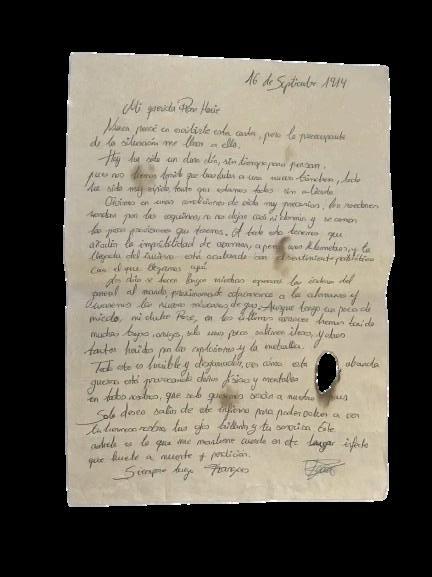 16 de Septiembre 1914
Mi querida Rose Marie
Nunca pensé en escribirte esta carta, pero lo preocupante
de la situación me lleva a ello.
Hoy ha sido un duro día, sin tiempo para pensar,
pues nos hemos tenido que trasladar a una nueva trinchera, todo
ha sido muy rápido, tanto que estamos todos sin aliento.
Vivimos en unas condiciones de vida muy precarias, los roedores
rondan por las esquinas, no nos dejan casi ni dormir y se comen
las pocas provisiones que tenemos. A todo esto tenemos que
añadir la imposibilidad de asearnos, a penas unos kilómetros, y la
llegada del invierno está acabando con el sentimiento patriótico
con el que llegamos aquí.
Los días se hacen largos mientras esperamos las órdenes del
general al mando, próximamente atacaremos a los alemanes y
usaremos las nuevas máscaras de gas. Aunque tengo un poco de
miedo, mi dulce Rose, en los últimos ataques hemos tenido
muchas bajas, amigos, solo unos pocos salieron ilesos, y otros
tantos heridos por las explosiones y la metralla.
Todo esto es horrible y desgarrador, ver cómo esta absurda
guerra está provocando daños físicos y mentales
en todos nosotros, que solo queremos servir a nuestro
Solo deseo salir de este infierno para poder volver a ver
tu hermoso rostro, tus ojos brillantes y tu sonrisa. Este
anhelo es lo que me mantiene cuerdo en este lugar infecto
que huele a muerte y perdición.
Siempre tuyo François